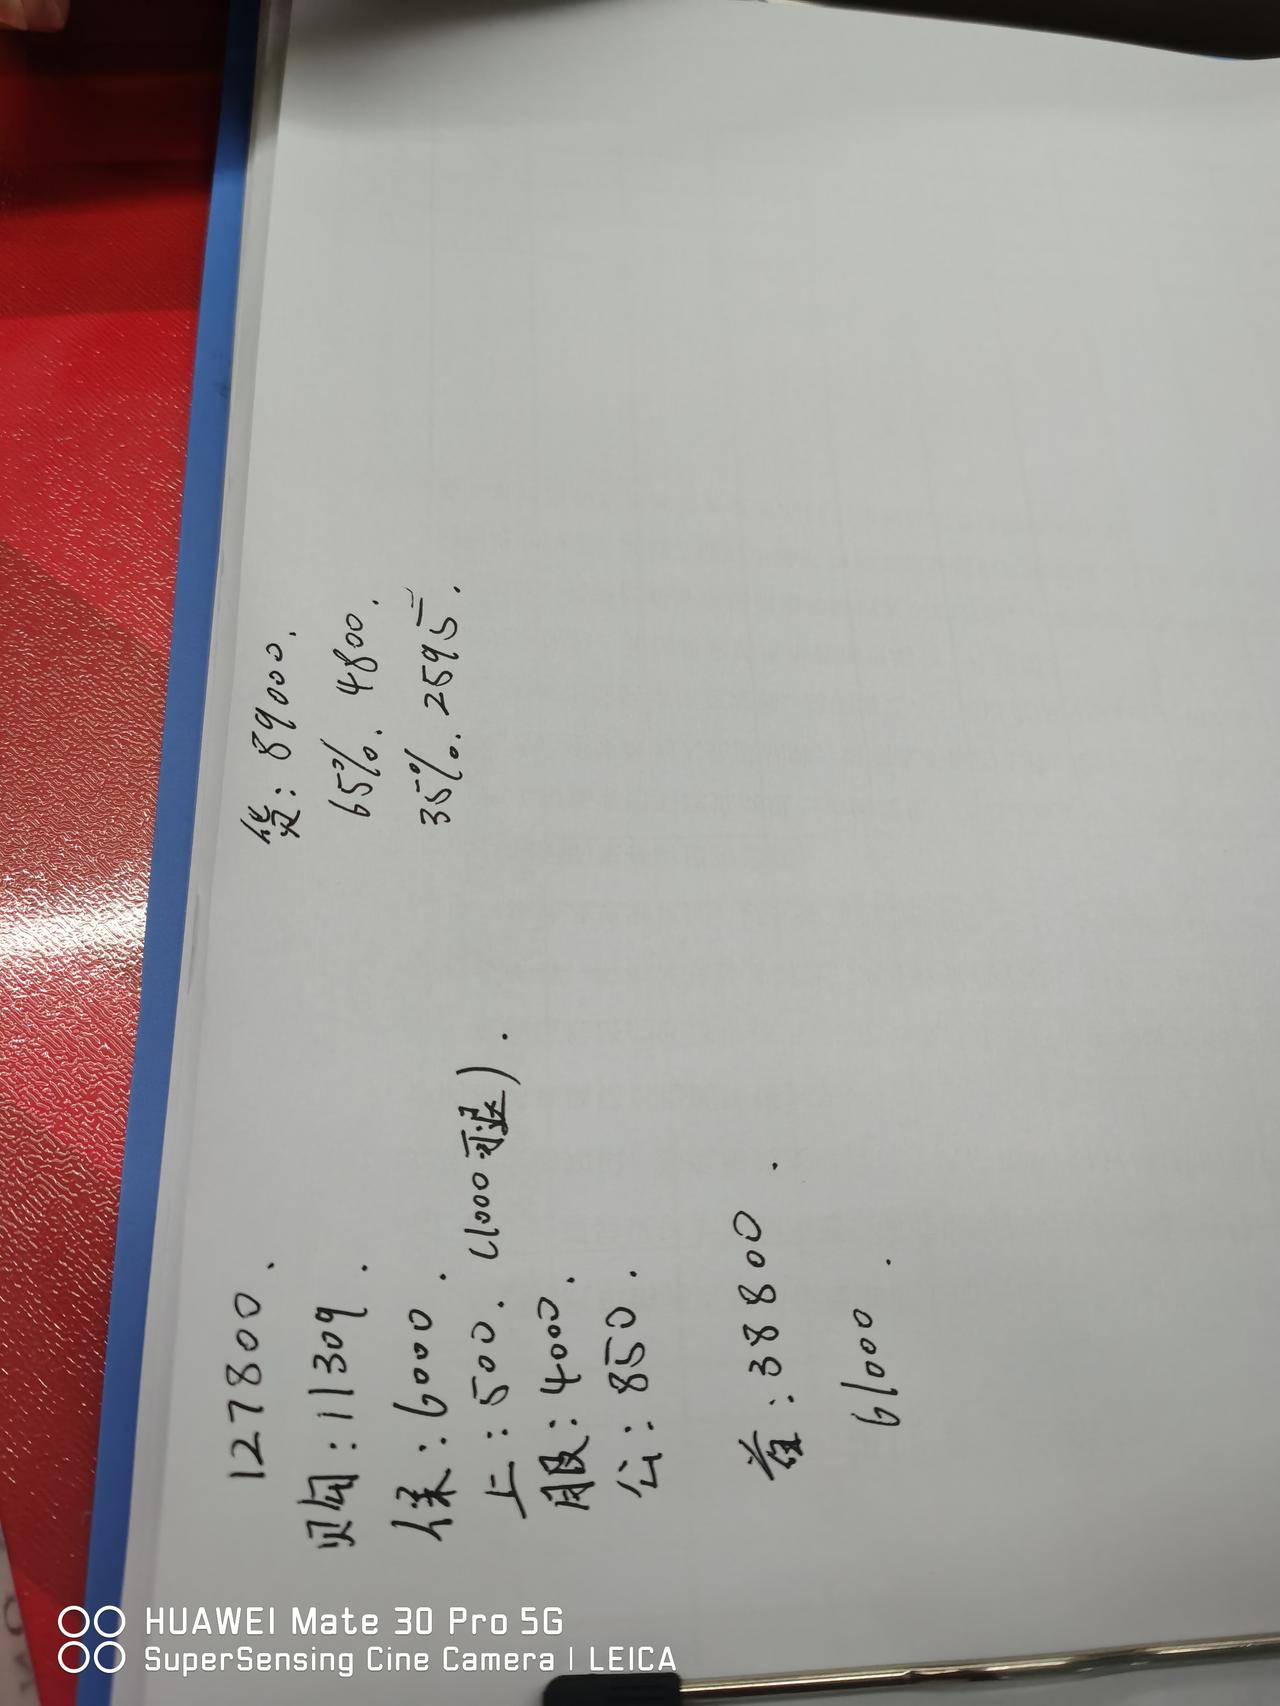 127800.
购:11309.
保:6000.
上:500.(1000可退).
服:4000.
公:850.
首:38800.
61000.
贷:89000.
65%. 4800.
35%. 2595.
HUAWEI Mate 30 Pro 5G
SuperSensing Cine Camera | LEICA